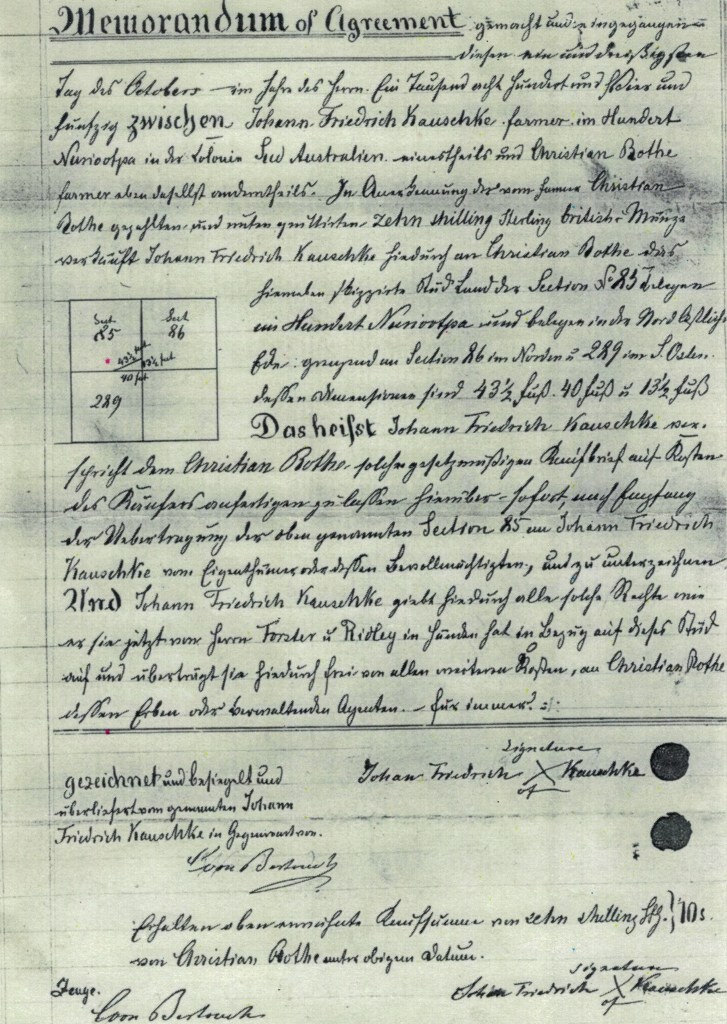 Memorandum of Agreement gemacht und eingegangen
diesen ein und dreißigsten
Tag des Octobers im Jahre des Herrn Ein Tausend acht Hundert und Vier und
funfzig zwischen Johann Friedrich Kauschke farmer im Hundert
Nuriootpa in der Colonie Sud Australien einestheils und Christian Bothe
farmer eben daselbst anderntheils. In Anerkennung der vom farmer Christian
Bothe gezahlten und unten quittirten zehn shilling Sterling british Munze
verkauft Johann Friedrich Kauschke hiedurch an Christian Bothe das
hieneben skizzirte Stück Land der Section No 85 gelegen
im Hundert Nuriootpa und belegen in der Nord Östlichen
Ecke grenzend an Section 86 im Norden u 289 im S. Osten.
dessen Dimensionen sind 43½ fuß. 40 fuß u 13½ fuß
Sect 85
Sect 86
43½ feet 13½ feet
40 feet
289
Das heisst Johann Friedrich Kauschke ver-
spricht dem Christian Bothe solchen gesetzmäßigen Kaufbrief auf Kosten
des Käufers anfertigen zu lassen hierüber sofort, nach Empfang
der Uebertragung der oben genannten Section 85 an Johann Friedrich
Kauschke vom Eigenthümer oder dessen Bevollmächtigten, und zu unterzeichnen
Und Johann Friedrich Kauschke giebt hiedurch alle solche Rechte wie
er sie jetzt von Herrn Forster u Ridley in Händen hat in Bezug auf dieses Stück
auf und überträgt sie hiedurch frei von allen weiteren Kosten, an Christian Bothe
dessen Erben oder verwaltenden Agenten. – für immer.
gezeichnet und besiegelt und
überliefert vom genannten Johann
Friedrich Kauschke in Gegenwart von.
signature
Johan Friedrich X Kauschke
of
Erhalten oben erwähnte Kaufsumme von zehn shilling Stg. } 10s.
von Christian Bothe unter obigem Datum.
Zeuge.
signature
Johan Friedrich X Kauschke
of